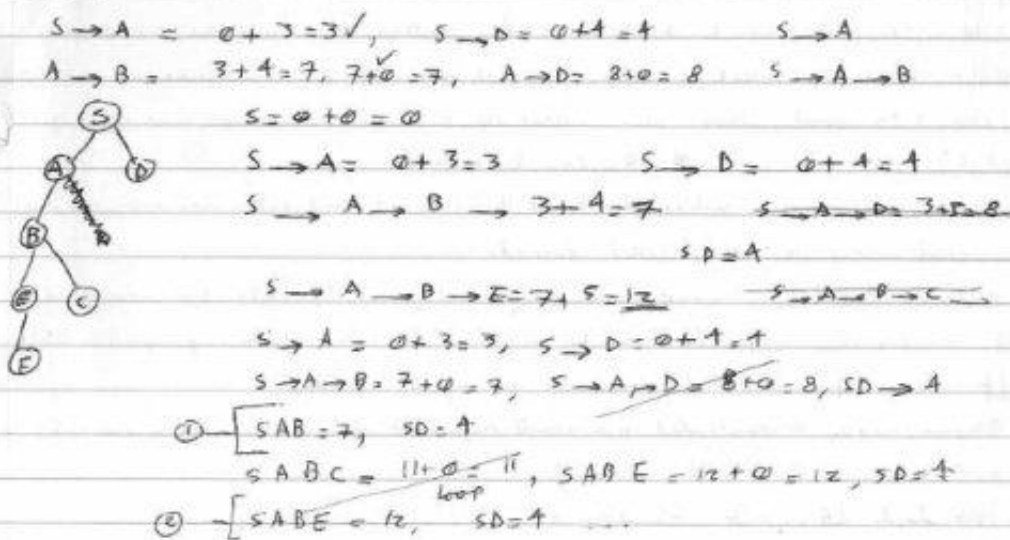 S → A = 0 + 3 = 3 ✓, S → D = 0 + 4 = 4 S → A
A → B = 3 + 4 = 7, 7 + 0 = 7 ✓, A → D = 8 + 0 = 8 S → A → B
S
A D
B
E C
F
S = 0 + 0 = 0
S → A = 0 + 3 = 3 S → D = 0 + 4 = 4
S → A → B → 3 + 4 = 7 S → A → D = 3 + 5 = 8
SD = 4
S → A → B → E = 7 + 5 = 12 S → A → B → C →
S → A = 0 + 3 = 3, S → D = 0 + 4 = 4
S → A → B = 7 + 0 = 7, S → A → D = 8 + 0 = 8, SD → 4
① SAB = 7, SD = 4
SABC = 11 + 0 = 11, SABE = 12 + 0 = 12, SD = 4
loop
② SABE = 12, SD = 4 ...